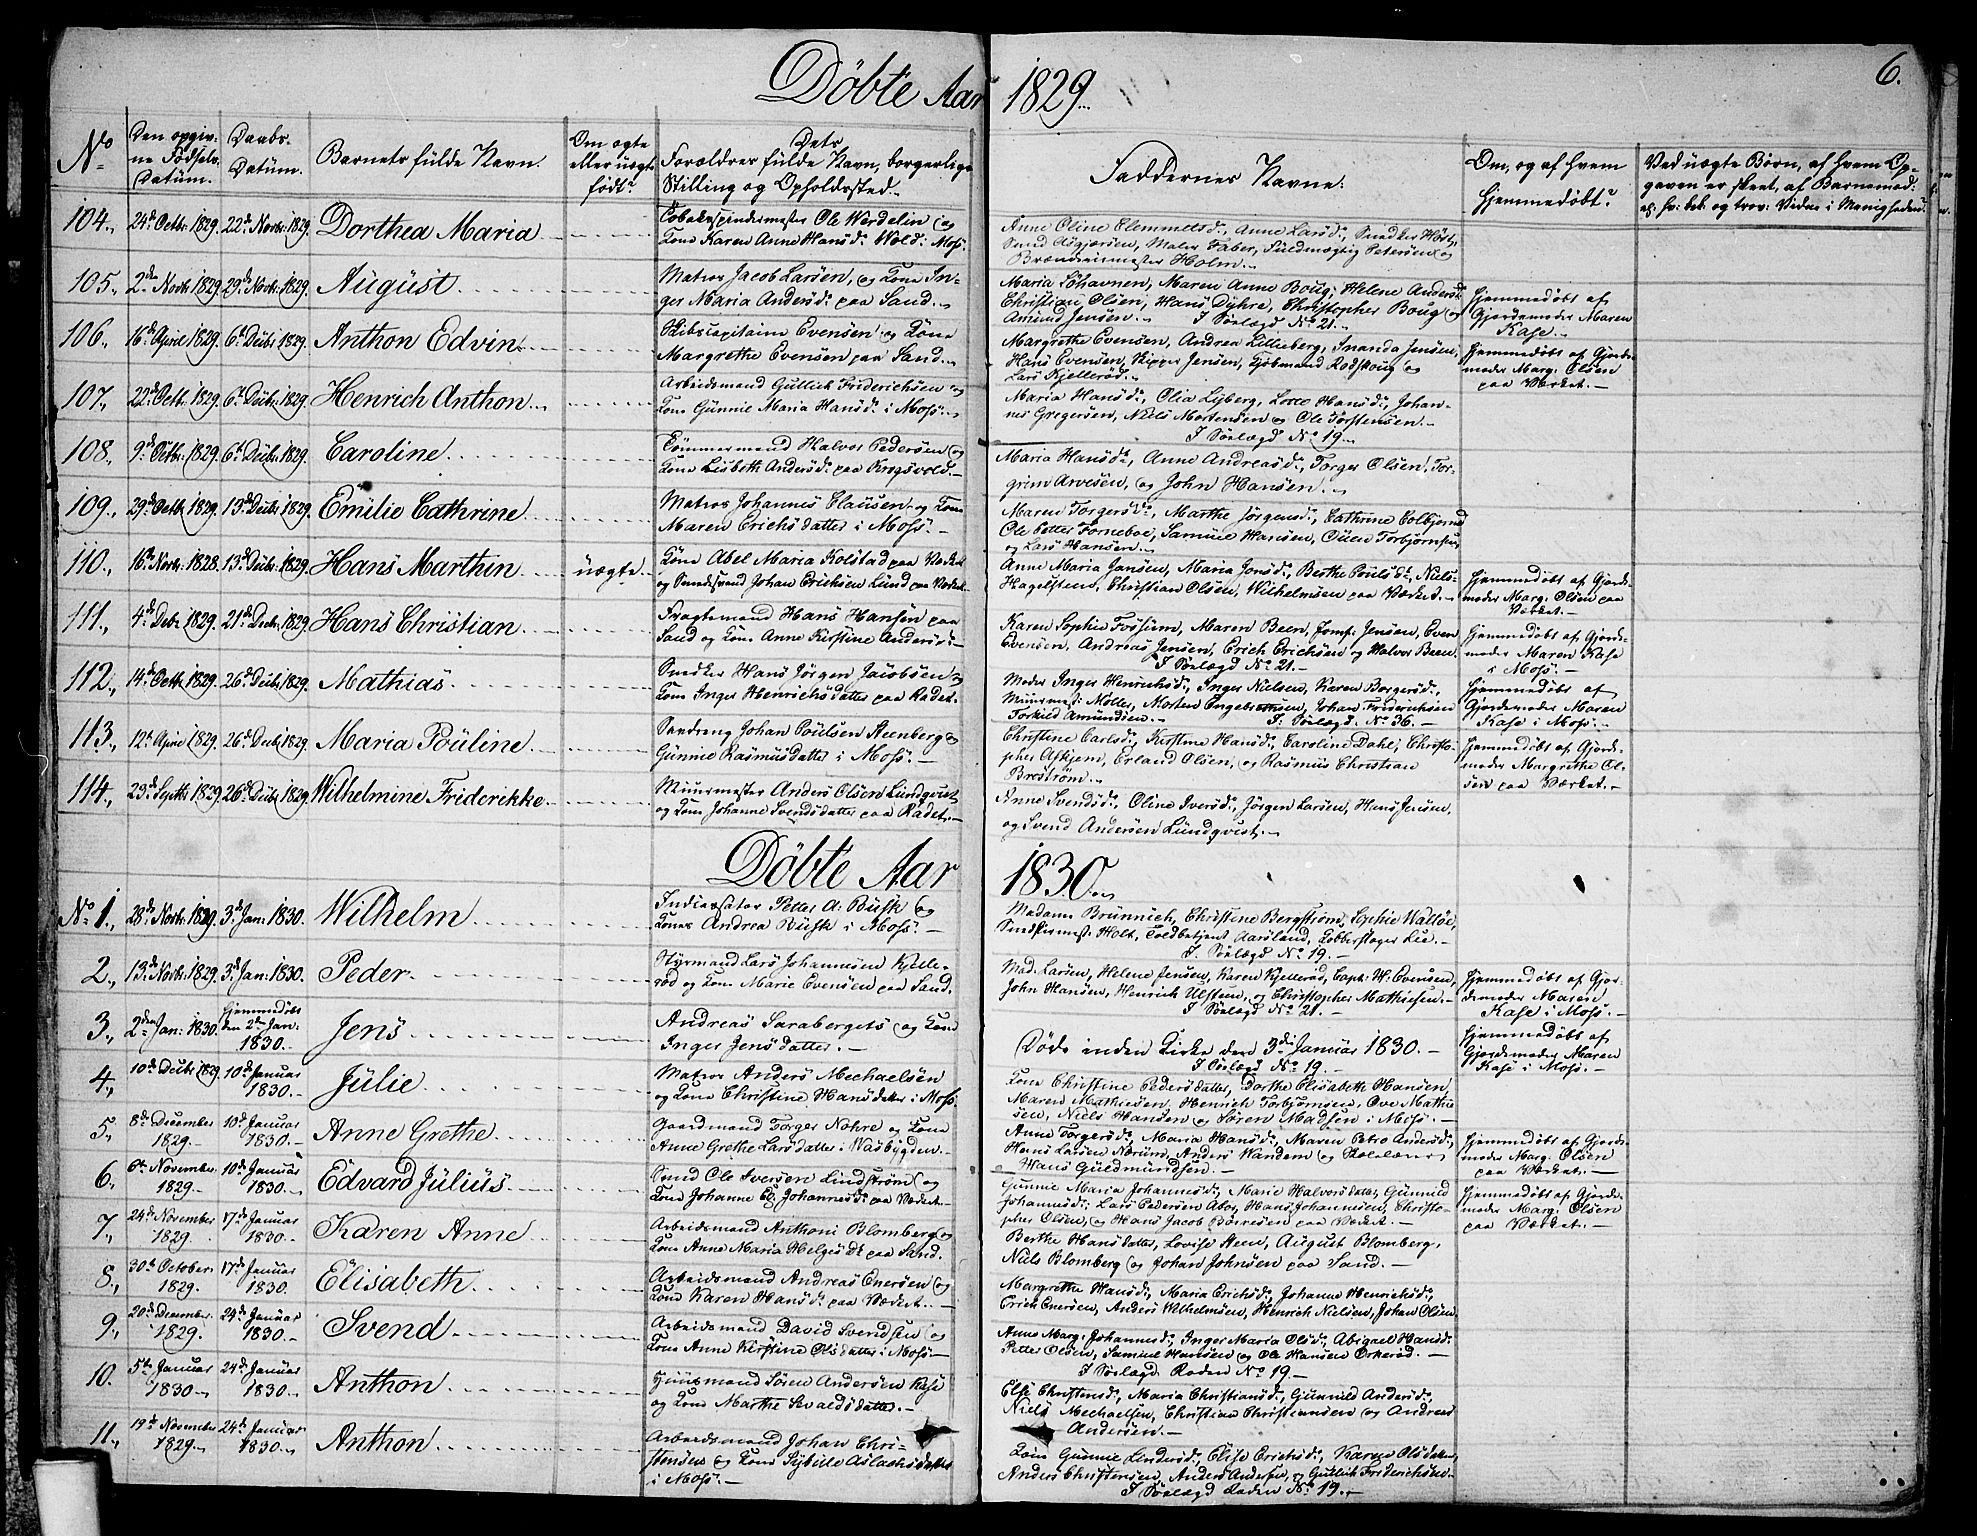 Döbte Aar 1829.
6.
No
Den opgiv-
ne Födsels-
Datüm.
Daabs-
Datüm.
Barnets fülde Navn.
Om ægte
eller üægte
födt?
Dets
Forældres fülde Navn, borgerlige
Stilling og Opholdssted.
Faddernes Navne.
Om, og af hvem
hjemmedöbt?
Ved üægte Börn, af hvem Op-
gaven er skeet, af Barnemod:
104., 24de Octbr 1829. 22de Novbr 1829. Dorthea Maria
Tobakspindermester Ole Werdelin og
Kone Karen Anne Hansd: Wold. Moss.
Anne Oline Clemmetsd:, Anne Larsd:, Snedker Höst,
Smed Asgjorsen, Maler Faber, Füldmægtig Petersen og
Brænderimester Holm.
105., 2de Novbr 1829. 29de Novbr 1829. Aügüst
Matros Jacob Larsen, og Kone In-
ger Maria Andersd: paa Sand.
Maria Anne Boug, Helene Andersd:
Christian Olsen, Hans Dyhre, Christopher Boug og
Amünd Jensen. I Sölægd No 21.
hjemmedöbt af
Gjordemoder Maren
Kase.
106., 16de April 1829. 6te Decbr 1829. Anthon Edvin
Skibscapitaine Evensen og Kone
Margrethe Evensen paa Sand.
Margrethe Evensen, Andrea Lillieberg, Amanda Jensen,
Hans Evensen, Skipper Jensen, Kjöbmand Rodskoug og
Lars Kjelleröd.
hjemmedöbt af Gjorde-
moder Marg: Olsen
paa Værket.
107., 22de Octbr 1829. 6te Decbr 1829. Henrich Anthon
Arbeidsmand Güllich Friderichsen og
Kone Günnie Maria Hansd: i Moss.
Maria Hansd:, Olia Lyberg, Lotte Hansd:, Johan-
nes Gregersen, Niels Mortensen og Ole Torstensen.
I Sölægd No 19.
108., 9de Octbr 1829. 6te Decbr 1829. Caroline
Tömmermand Halvor Pedersen og
Kone Lisbeth Andersd: paa Krogsvold.
Maria Hansd:, Anne Andreasd:, Torger Olsen, Tor-
grim Arvesen, og John Hansen.
109., 29de Octbr 1829. 13de Decbr 1829. Emilie Cathrine
Matros Johannes Clausen og Kone
Maren Erichsdatter i Moss.
Maren Torgersd:, Marthe Jörgensd:, Cathrine Colbjörnsd
Ole Petter Forneboe, Samüel Hansen, Torbjörnsen,
og Lars Hansen.
110., 16de Novbr 1828. 13de Decbr 1829. Hans Marthin
üægte
Kone Abel Maria Kolstad paa Værket
og Smedsvend Johan Erichsen Lünd paa Værket.
Anne Maria Jansen, Maria Jonsd:, Berthe Poülsd:, Niels
Hagelsteen, Christian Olsen, Wilhelmsen paa Værket.
hjemmedöbt af Gjorde-
moder Marg: Olsen paa
Værket.
111., 4de Decbr 1829. 21de Decbr 1829. Hans Christian
Fragtemand Hans Hansen paa
Sand og Kone Anne Kirstine Andersd:
Karen Sophie Fossüm, Maren Been, Jomf: Jensen, Even
Evensen, Andreas Jensen, Erich Erichsen og Halvor Been.
I Sölægd No 21.
hjemmedöbt af Gjorde-
moder Maren Kase
i Moss.
112., 14de Octbr 1829. 26de Decbr 1829. Mathias
Snedker Hans Jörgen Jacobsen og
Kone Inger Henrichsdatter paa Radet.
Moder Inger Henrichsd:, Inger Nielsen, Karen Borgersd:,
Müürmest: Möller, Morten Engebretsen, Johan Friderichsen
Torkild Amündsen. I Sölægd. No 36.
hjemmedöbt af
Gjordemoder Maren
Kase i Moss.
113., 12te April 1829. 26de Decbr 1829. Maria Poüline
Sandreng Johan Poülsen Steenberg og
Günnie Rasmüsdatter i Moss.
Christine Carlsd:, Kirstine Hansd:, Caroline Dahl, Christo-
pher Askjem, Erland Olsen, og Rasmüs Christian
Broström.
hjemmedöbt af Gjorde-
moder Margrethe Ol-
sen paa Værket.
114., 29de Septbr 1829. 26de Decbr 1829. Wilhelmine Friderikke
Müürmester Anders Olsen Lündqvist
og Kone Johanne Svendsdatter paa Radet.
Anne Svendsd:, Oline Iversd:, Jörgen Larsen, Hans Jensen,
og Svend Andersen Lündqvist.
Döbte Aar 1830.
No 1., 28de Novbr 1829. 3de Jan: 1830. Wilhelm
Petter A. Büsk og
Kone Andrea Büsk i Moss.
Madame Brünnich, Christine Bergström, Sophie Walloe,
Holt, Toldbetjent Aarsland, Kobberslager Lie.
I Sölægd No 19.
2., 13de Novbr 1829. 3de Jan: 1830. Peder
Styrmand Lars Johannesen Kjelle-
röd og Kone Marie Evensen paa Sand.
Mad: Larsen, Helene Jensen, Karen Kjelleröd, Capt: H: Evensen,
John Hansen, Henrich Ulsteen, og Christopher Mathiesen.
I Sölægd No 21.
hjemmedöbt af Gjor-
demoder Maren
Kase i Moss.
3., 2den Jan: 1830. hjemmedöbt
den 2den Jan:
1830. Jens
Andreas Sarabergets og Kone
Inger Jensdatter.
Döde inden Kirke den 3die Januar 1830.
I Sölægd No 19.
hjemmedöbt af
Gjordemoder Maren
Kase i Moss.
4., 10de Decbr 1829. 10de Januar
1830. Jülie
Matros Anders Mechaelsen
og Kone Christine Hansdatter i Moss.
Kone Christine Pedersdatter, Dorthe Elisabeth Hansen,
Maren Mathiesen, Henrich Torbjörnsen, Ove Mathie-
sen, Niels Hansen og Sören Madsen i Moss.
5., 8de December
1829. 10de Januar
1830. Anne Grethe
Gaardmand Torger Nohre og Kone
Anne Grethe Larsdatter i Wasbygden.
Anne Torgersd:, Maria Hansd:, Maren Petro Andersd:,
Hans Larsen Nærüm, Anders Wandem og
Hans Güldmündsen.
hjemmedöbt af Gjorde-
moder Marg: Olsen
paa Værket.
6., 6te November
1829. 10de Januar
1830. Edvard Jüliüs
Smed Ole Iversen Lindström og
Kone Johanne Johannesd: paa Værket.
Günnie Maria Johannesd:, Marie Halvorsdatter, Günnild
Johannesd:, Lars Pedersen Aloe, Hans Johannesen, Christo-
pher Olsen, og Hans Jacob Börresen paa Værket.
hjemmedöbt af Gjorde-
moder Marg: Olsen
paa Værket.
7., 24de November
1829. 17de Januar
1830. Karen Anne
Arbeidsmand Anthoni Blomberg og
Kone Anne Maria Helgesd: paa Sand.
Berthe Hansdatter, Lovise Steen, Aügüst Blomberg,
Niels Blomberg og Johan Johnsen paa Sand.
8., 30de October
1829. 17de Januar
1830. Elisabeth
Arbeidsmand Andreas Enersen og
Kone Karen Hansd: paa Værket.
Margrethe Hansd:, Maria Erichsd:, Johanne Henrichsd:,
Erich Enersen, Anders Wilhelmsen, Henrich Nielsen, Johan Olsen.
9., 20de December
1829. 24de Januar
1830. Svend
Arbeidsmand David Svendsen og
Kone Anne Kirstine Olsdatter i Moss.
Anne Marg: Johannesd:, Inger Maria Olsd:, Abigael Hansd:
Petter Olsen, Samüel Hansen og Ole Hansen Örkeröd.
I Sölægd Raden No 19.
10. 5te Januar
1830. 24de Januar
1830. Anthon
Hüüsmand Sören Andersen Kase
og Kone Marthe Sevaldsdatter.
Else Christensd:, Maria Christiansd:, Günnild Andersd:,
Niels Mechaelsen, Christian Christiansen og Andreas
Andersen.
11., 19de November
1829. 24de Januar
1830. Anthon
Arbeidsmand Johan Chri-
stensen og Kone Sybille Aslachsdatter
i Moss.
Kone Günnie Lindersd:, Elise Erichsd:, Karen Olsdatter,
Anders Christensen, Anders Andersen, og Güllich Friderichsen.
I Sölægd Raden No 19.